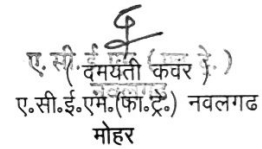 ( दमयंती कंवर )
ए.सी.ई.एम.(फा.ट्रे.) नवलगढ
मोहर